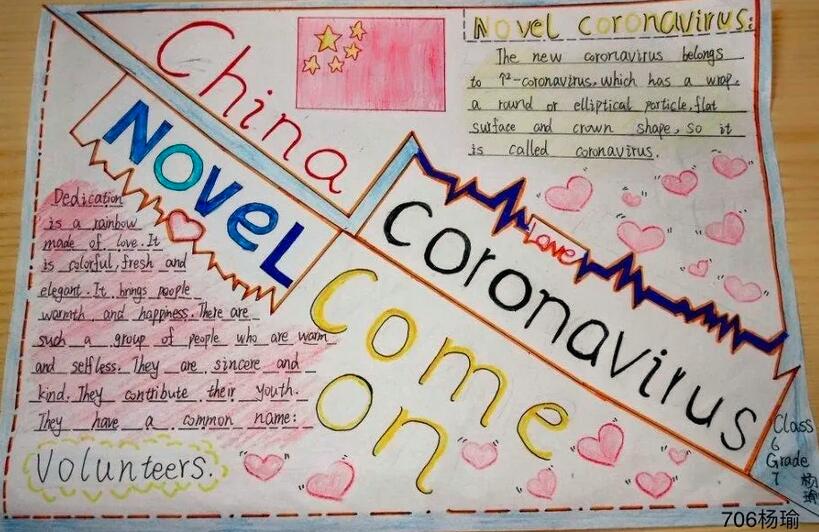 China
Novel
Novel coronavirus:
The new coronavirus belongs
to r²-coronavirus, which has a wrap.
a round or elliptical particle, flat
surface and crown shape, so it
is called coronavirus.
Love
coronavirus
Come
on
Dedication
is a rainbow
made of love. It
is colorful, fresh and
elegant. It brings people
warmth and happiness. There are
such a group of people who are warm
and selfless. They are sincere and
kind. They contribute their youth.
They have a common name:
Volunteers.
Class
6
Grade
7
杨
瑜
706杨瑜